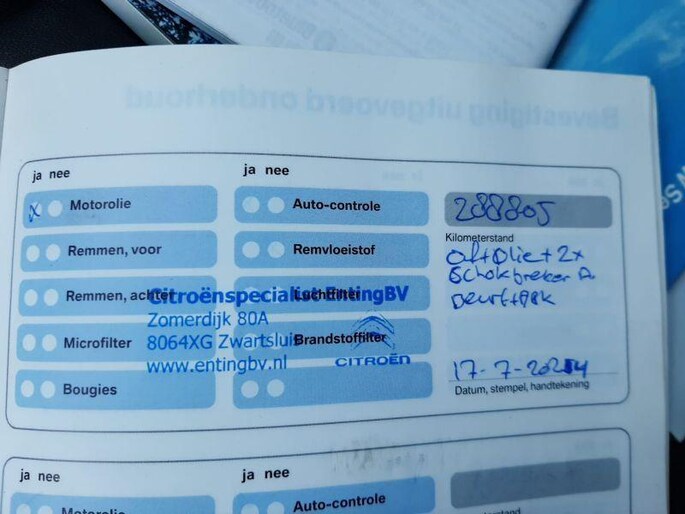 Bevestiging uitgevoerd onderhoud
ja nee
ja nee
x Motorolie
Auto-controle
288805
Kilometerstand
Remmen, voor
Remvloeistof
olie + 2x
Schokbreker A.
Remmen, achter
Luchtfilter
Citroënspecialist Enting BV
Zomerdijk 80A
Microfilter
8064XG Zwartsluis
Brandstoffilter
www.entingbv.nl
CITROËN
17-7-2024
Datum, stempel, handtekening
Bougies
ja nee
ja nee
Motorolie
Auto-controle